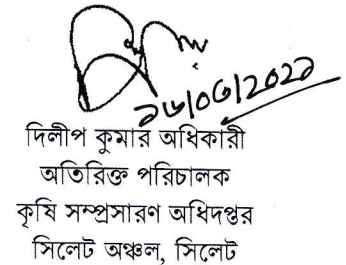 ১৬/০৩/২০২১
দিলীপ কুমার অধিকারী
অতিরিক্ত পরিচালক
কৃষি সম্প্রসারণ অধিদপ্তর
সিলেট অঞ্চল, সিলেট